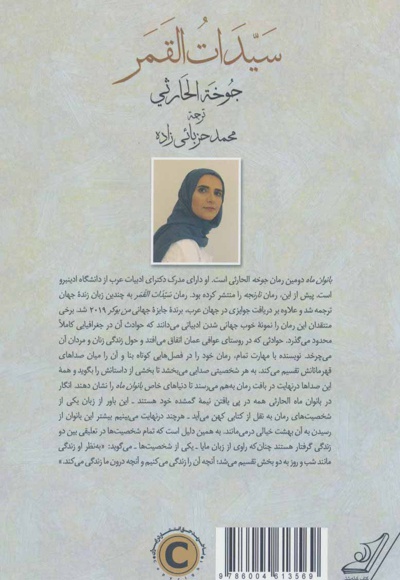 سیّدات القمر
جوخة الحارثي
ترجمهٔ
محمد حزبائی‌زاده
بانوان ماه دومین رمان جوخه الحارثی است. او دارای مدرک دکترای ادبیات عرب از دانشگاه ادینبرو
است. پیش از این، رمان نارنجه را منتشر کرده بود. رمان سیّدات القمر به چندین زبان زندهٔ جهان
ترجمه شد و علاوه بر دریافت جوایزی در جهان عرب، برندهٔ جایزهٔ جهانی من بوکر ۲۰۱۹ شد. برخی
منتقدان این رمان را نمونهٔ خوب جهانی شدن ادبیاتی می‌دانند که حوادث آن در جغرافیایی کاملاً
محدود می‌گذرد. حوادثی که در روستای عوافی عمان اتفاق می‌افتد و حول زندگی زنان و مردان آن
می‌چرخد. نویسنده با مهارت تمام، رمان خود را در فصل‌هایی کوتاه بنا و آن را میان صداهای
قهرمانانش تقسیم می‌کند. به هر شخصیتی صدایی می‌بخشد تا بخشی از داستانش را بگوید و همهٔ
این صداها درنهایت در بافت رمان به‌هم می‌رسند تا دنیاهای خاص بانوان ماه را نشان دهند. انگار
در بانوان ماه الحارثی همه در پی یافتن نیمهٔ گمشده خود هستند ـ این باور از زبان یکی از
شخصیت‌های رمان به نقل از کتابی کهن می‌آید ـ هرچند درنهایت می‌بینیم بیشتر این بانوان از
رسیدن به آن بهشت خیالی درمی‌مانند. به همین دلیل است که تمام شخصیت‌ها در تعلیقی بین دو
زندگی گرفتار هستند چنان‌که راوی از زبان مایا ـ یکی از شخصیت‌ها ـ می‌گوید: «به‌نظر او زندگی
مانند شب و روز به دو بخش تقسیم می‌شد؛ آنچه آن را زندگی می‌کنیم و آنچه درون ما زندگی می‌کند.»
9 786004 613569